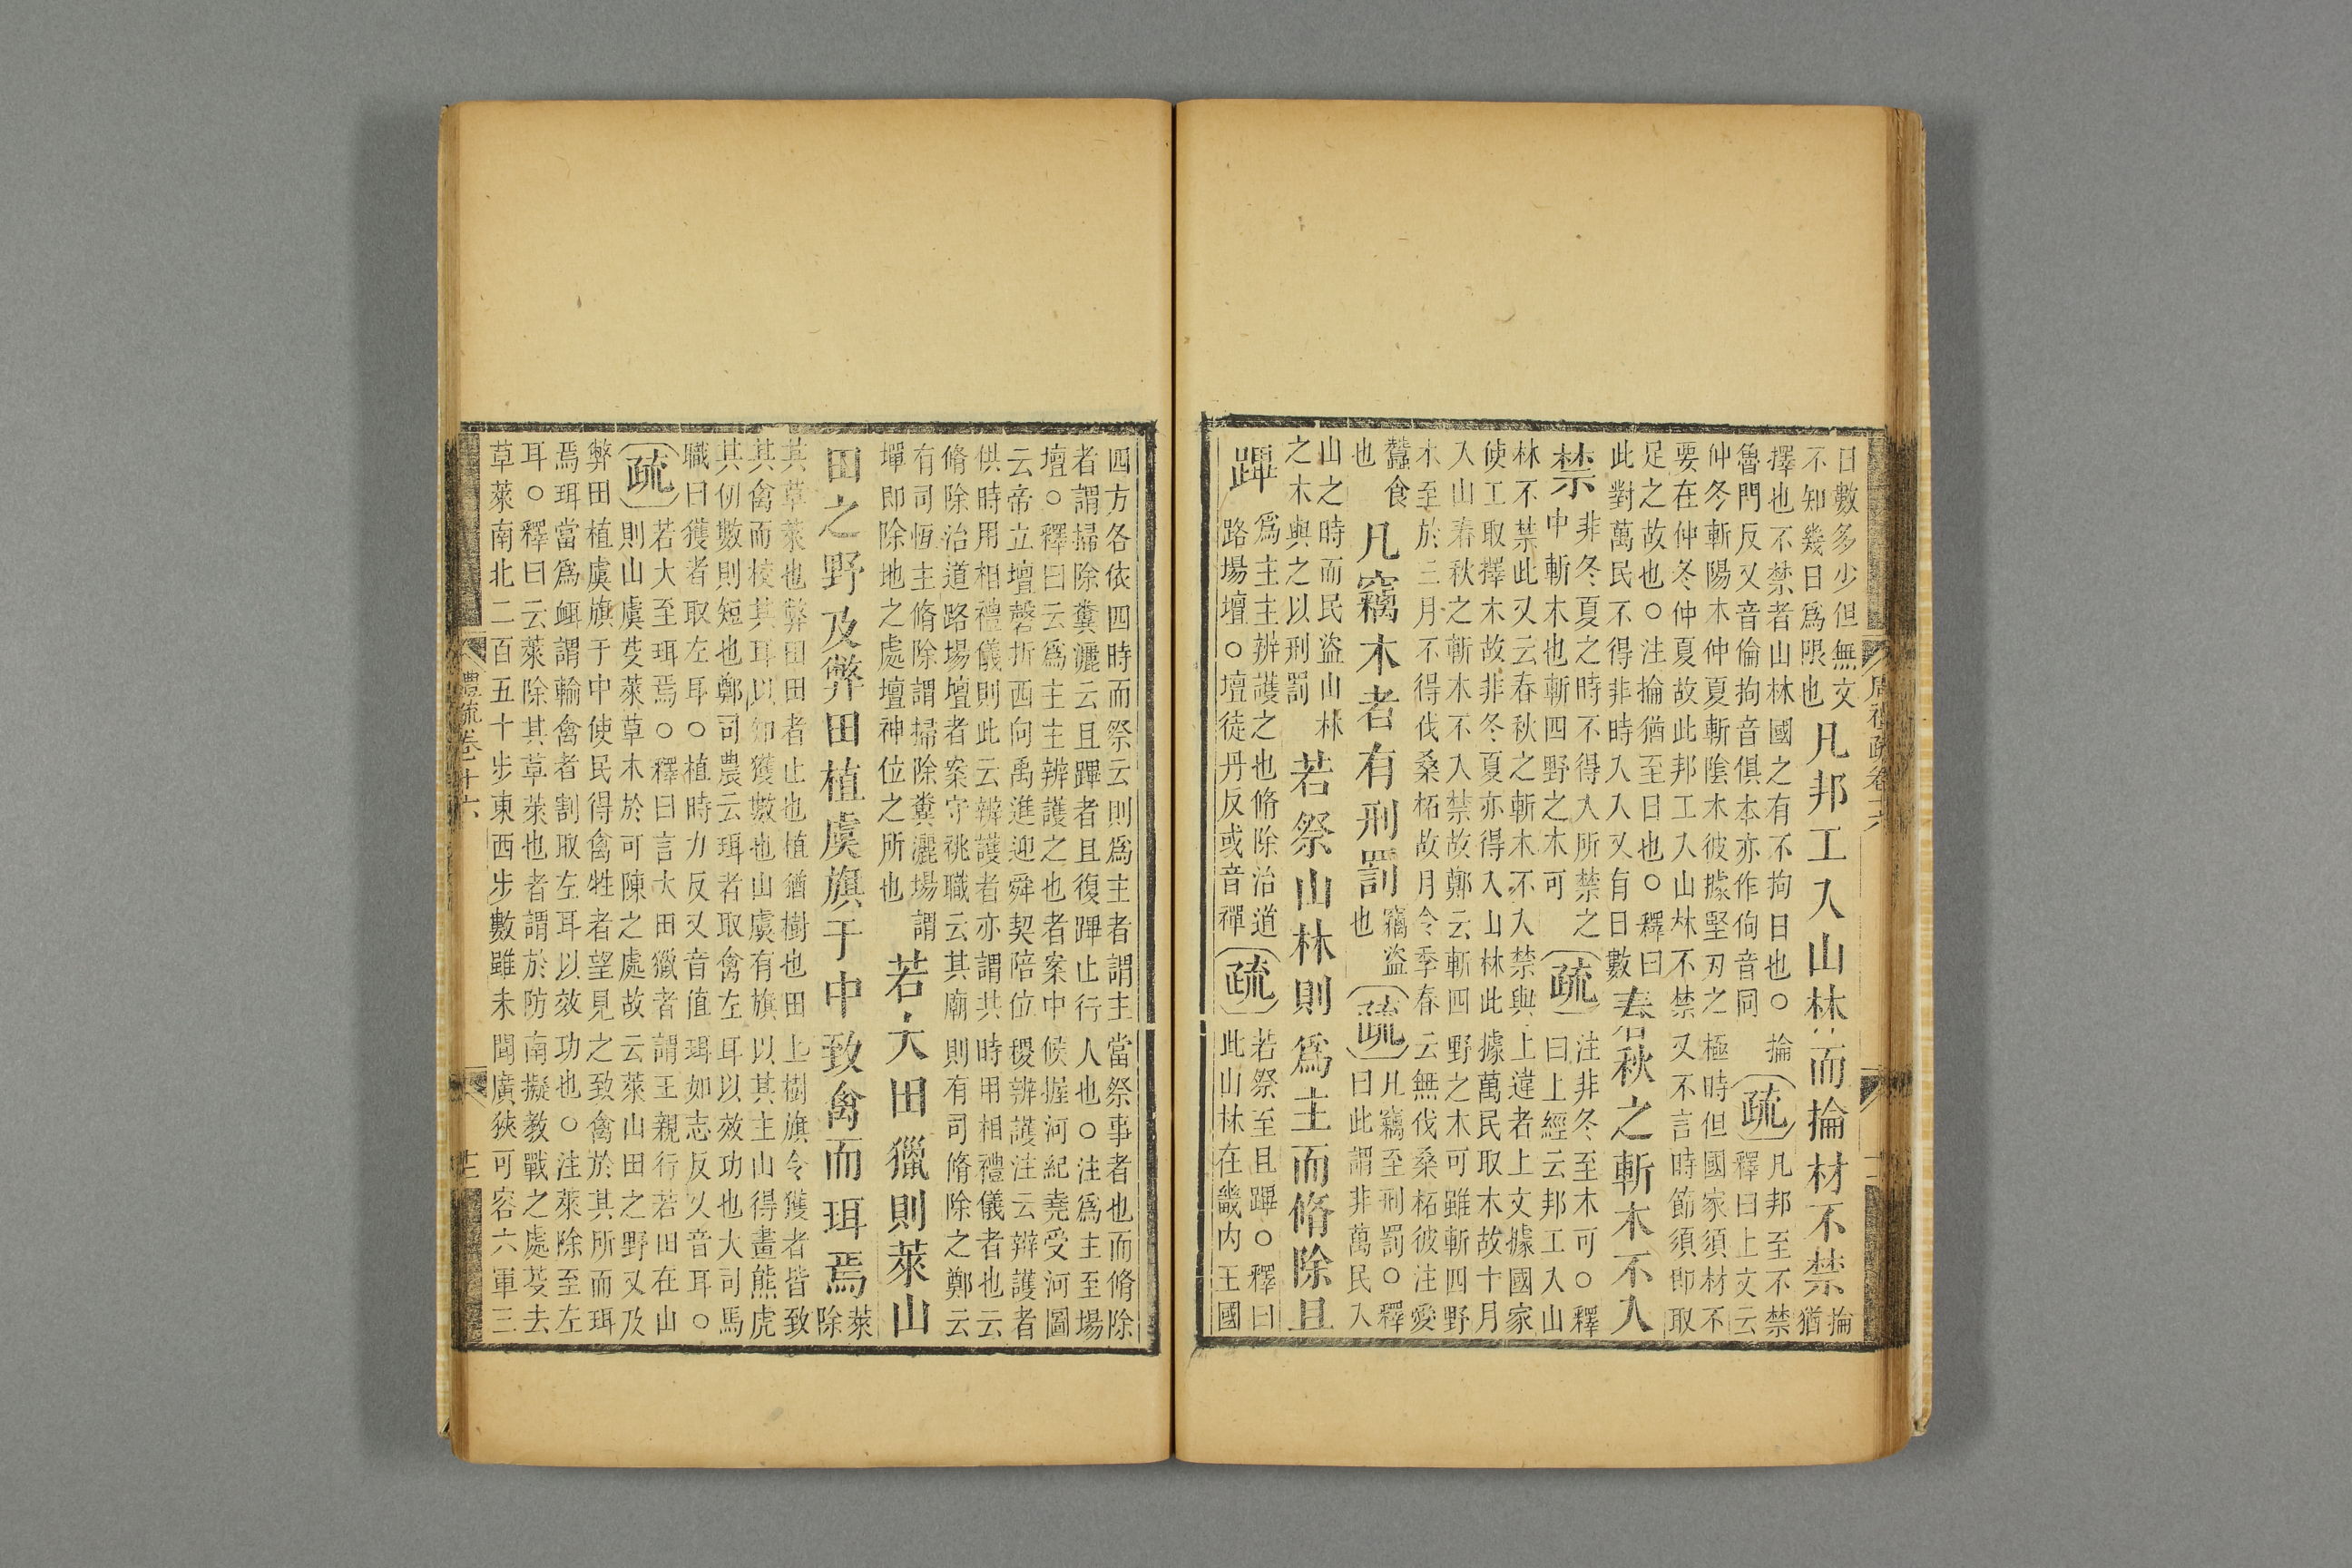 周禮疏卷十六
日數多少但無文
不知幾日爲限也
凡邦工入山林而掄材不禁
掄
猶
擇也不禁者山林國之有不拘日也○掄
魯門反又音倫拘音俱本亦作佝音同
疏
凡邦至不禁
釋曰上文云
仲冬斬陽木仲夏斬陰木彼據堅刃之極時但國家須材不
要在仲冬仲夏故此邦工入山林不禁又不言時節須卽取
足之故也○注掄猶至日也○釋曰
此對萬民不得非時入入又有日數
春秋之斬木不入
禁
非冬夏之時不得入所禁之
中斬木也斬四野之木可
疏
注非冬至木可○釋
曰上經云邦工入山
林不禁此又云春秋之斬木不入禁與上違者上文據國家
使工取擇木故非冬夏亦得入山林此據萬民取木故十月
入山春秋之斬木不入禁故鄭云斬四野之木可雖斬四野
木至於三月不得伐桑柘故月令季春云無伐桑柘彼注愛
蠶食
也
凡竊木者有刑罰
竊盜
也
疏
凡竊至刑罰○釋
曰此謂非萬民入
山之時而民盜山林
之木與之以刑罰
若祭山林則爲主而脩除且
蹕
爲主主辨護之也脩除治道
路場壇○壇徒丹反或音禪
疏
若祭至且蹕○釋曰
此山林在畿內王國
四方各依四時而祭云則爲主者謂主當祭事者也而脩除
者謂掃除糞灑云且蹕者且復蹕止行人也○注爲主至場
壇○釋曰云爲主主辨護之也者案中候握河紀堯受河圖
云帝立壇磬折西向禹進迎舜契陪位稷辨護注云辨護者
供時用相禮儀則此云辨護者亦謂共時用相禮儀者也云
脩除治道路場壇者案守祧職云其廟則有司脩除之鄭云
有司恆主脩除謂掃除糞灑場謂
墠即除地之處壇神位之所也
若大田獵則萊山
田之野及弊田植虞旗于中致禽而珥焉
萊
除
其草萊也弊田田者止也植猶樹也田上樹旗令獲者皆致
其禽而校其耳以知獲數也山虞有旗以其主山得畫熊虎
其仞數則短也鄭司農云珥者取禽左耳以效功也大司馬
職曰獲者取左耳○植時力反又音值珥如志反又音耳○
疏
若大至珥焉○釋曰言大田獵者謂王親行若田在山
則山虞芟萊草木於可陳之處故云萊山田之野又及
弊田植虞旗于中使民得禽牲者望見之致禽於其所而珥
焉珥當爲衈謂輪禽者割取左耳以效功也○注萊除至左
耳○釋曰云萊除其草萊也者謂於防南擬教戰之處芟去
草萊南北二百五十步東西步數雖未聞廣狹可容六軍三
禮疏卷十六